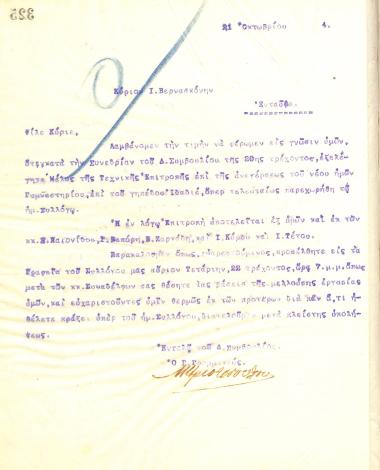 325
21 Ὀκτωβρίου 4.
Κύριον Ι. Βερνασκόνην
Ἐνταῦθα.
Φίλε Κύριε,
Λαμβάνομεν τὴν τιμὴν νὰ φέρωμεν εἰς γνῶσιν ὑμῶν,
ὅτι κατὰ τὴν Συνεδρίαν τοῦ Δ. Συμβουλίου τῆς 20ης τρέχοντος, ἐξελέ-
γητε Μέλος τῆς Τεχνικῆς Ἐπιτροπῆς ἐπὶ τῆς ἀνεγέρσεως τοῦ νέου ἡμῶν
Γυμναστηρίου, ἐπὶ τοῦ γηπέδου ὅπερ τελευταίως παρεχωρήθη τῷ
ἡμ. Συλλόγῳ.
Ἡ ἐν λόγῳ Ἐπιτροπὴ ἀποτελεῖται ἐξ ὑμῶν καὶ ἐκ τῶν
κκ. Παιονίδου, καὶ Ι. Κάμπου καὶ Ι. Τέτου.
Παρακαλοῦμεν ὅπως, εὐαρεστούμενος, προσέλθητε εἰς τὰ
Γραφεῖα τοῦ Συλλόγου μας αὔριον Τετάρτην, 22 τρέχοντος, ὥρᾳ 7 μ.μ. ὅπως
μετὰ τῶν κκ. Συναδέλφων σας θέσητε τὰς βάσεις τῆς μελλούσης ἐργασίας
ὑμῶν, καὶ εὐχαριστοῦντες ὑμῖν θερμῶς ἐκ τῶν προτέρων διὰ πᾶν ὅ,τι ἠ-
θέλετε πράξει ὑπὲρ τοῦ ἡμ. Συλλόγου, διατελοῦμεν μετὰ πλείστης ὑπολή-
ψεως.
Ἐντολῇ τοῦ Δ. Συμβουλίου.
Ὁ Γ. Γραμματεύς.